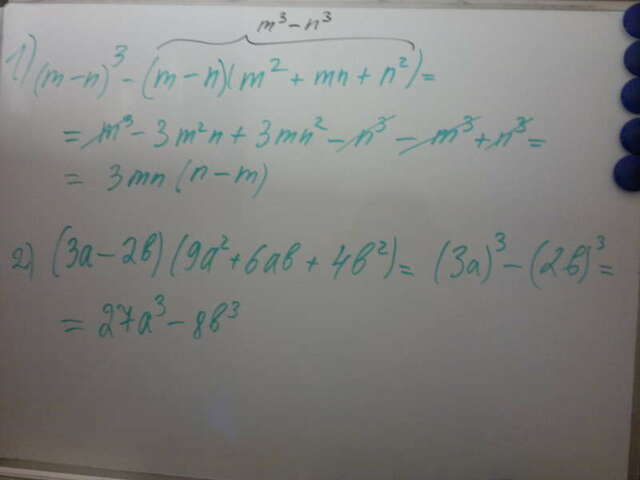 m³ - n³
1) (m - n)³ - (m - n)(m² + mn + n²) =
= m³ - 3m²n + 3mn² - n³ - m³ + n³ =
= 3mn (n - m)
2) (3a - 2b) (9a² + 6ab + 4b²) = (3a)³ - (2b)³ =
= 27a³ - 8b³